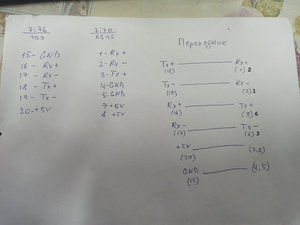 7i76
TB3
15 - GND
16 - Rx+
17 - Rx-
18 - Tx+
19 - Tx-
20 - +5v
7i70
RJ45
1 - Rx+
2 - Rx-
3 - Tx+
4 - GND
5 - GND
7 +5v
8 +5v
Переходник
Tx+ Rx+
(18) (1) 2
Tx- Rx-
(19) (2) 1
Rx+ Tx+
(16) (3) 6
Rx- Tx-
(17)
+5v
(20) (7,8)
GND (4,5)
(15)